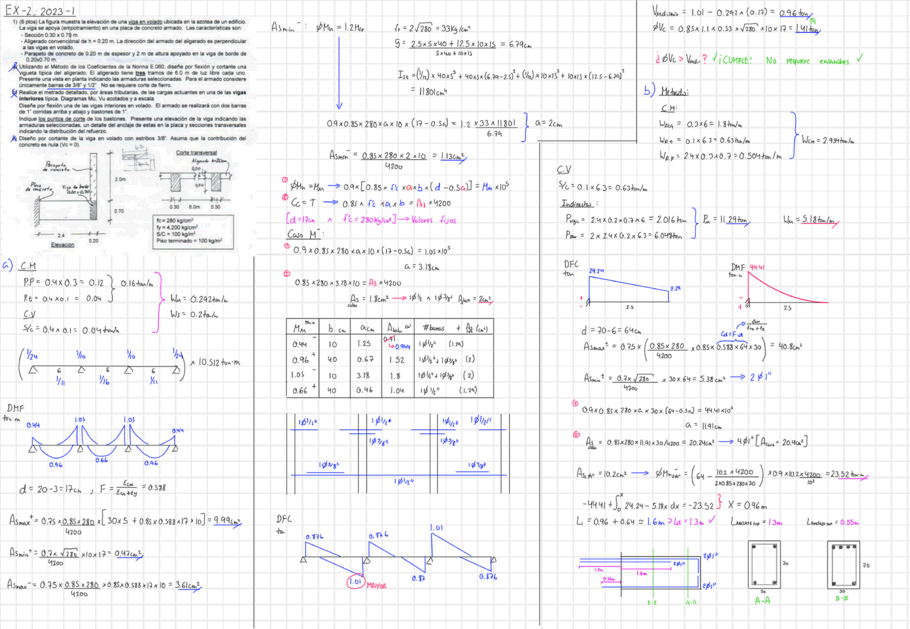 EX-2, 2023-1
1) (6 ptos) La figura muestra la elevación de una viga en volado ubicada en la azotea de un edificio.
La viga se apoya (empotramiento) en una placa de concreto armado. Las características son
- Sección 0.30 x0.70 m
- Aligerado convencional de h = 0.20 m. La dirección del armado del aligerado es perpendicular
a las vigas en volado.
- Parapeto de concreto de 0.20 m de espesor y 2 m de altura apoyado en la viga de borde de
0.20x0.70 m.
Utilizando el Método de los Coeficientes de la Norma E.060, diseñe por flexión y cortante una
vigueta típica del aligerado. El aligerado tiene tres tramos de 6.0 m de luz libre cada uno.
Presente una vista en planta indicando las armaduras seleccionadas. Para el armado considere
únicamente barras de 3/8" y 1/2". No se requiere corte de fierro.
Realice el metrado detallado, por áreas tributarias, de las cargas actuantes en una de las vigas
interiores típica. Diagramas Mu, Vu acotados y a escala.
Diseñe por flexión una de las vigas interiores en volado. El armado se realizará con dos barras
de 1" corridas arriba y abajo y bastones de 1".
Indique los puntos de corte de los bastones. Presente una elevación de la viga indicando las
armaduras seleccionadas, un detalle del anclaje de estas en la placa y secciones transversales
indicando la distribución del refuerzo.
Diseñe por cortante la viga en volado con estribos 3/8". Asuma que la contribución del
concreto es nula (Vc = 0).
Parapeto
de concreto
Corte transversal
Placa
de concreto
Viga de borde
2.0m
0.70
2.4
0.20
Elevación
0.30 6.0m 0.30
fc = 280 kg/cm²
fy = 4,200 kg/cm²
S/C = 100 kg/m²
Piso terminado = 100 kg/m²
a) C.M
P.P = 0.4x0.3 = 0.12
P.t = 0.4x0.1 = 0.04
0.16 ton/m
C.V
S/c = 0.4x0.1 = 0.04 ton/m
Wu = 0.292 ton/m
Ws = 0.2 ton/m
1/24 1/10 1/10 1/24
6 6 6
1/11 1/16 1/11
x 10.512 ton·m
DMF
ton·m
0.44 1.05 1.05 0.44
0.96 0.66 0.96
d = 20-3 = 17cm , F = εcu/(εcu+εy) = 0.588
Asmax⁺ = 0.75 x 0.85x280/4200 x [30x5 + 0.85x0.588x17x10] = 9.99cm²
Asmin⁺ = 0.7x√280/4200 x10x17 = 0.47cm²
Asmax⁻ = 0.75 x 0.85x280/4200 x0.85x0.588x17x10 = 3.61cm²
Asmin⁻: φMn = 1.2Mcr
fr = 2√280 = 33 kg/cm²
ȳ = (2.5x5x40 + 12.5x10x15)/(5x40+10x15) = 6.79cm
Ixx = (1/12)x40x5³ + 40x5x(6.79-2.5)² + (1/12)x10x15³ + 10x15x(12.5-6.79)²
= 11801cm⁴
0.9x0.85x280xax10x(17-0.5a) = 1.2 x 33x11801/6.79
a = 2cm
Asmin⁻ = 0.85x280x2x10/4200 = 1.13cm²
① φMn = Mu → 0.9x[0.85xf'cxaxbx(d-0.5a)] = Mu x10⁵
② Cc = T → 0.85xf'cxaxb = As x4200
[d=17cm ∧ f'c = 280kg/cm²] → Valores fijos
Caso M⁻:
① 0.9x0.85x280xax10x(17-0.5a) = 1.05x10⁵
a = 3.18cm
② 0.85x280x3.18x10 = As x4200
As = 1.8cm² → 1Ø1/2 ∧ 1Ø3/8" Asum = 2cm²
Mu ton·m | b cm | a cm | # barras + As (cm²)
0.44⁻ | 10 | 1.25 | 1Ø1/2" (1.29)
0.96⁺ | 40 | 0.67 | 1.52 | 1Ø1/2"+1Ø3/8" (2)
1.05⁻ | 10 | 3.18 | 1.8 | 1Ø1/2"+1Ø3/8" (2)
0.66⁺ | 40 | 0.46 | 1.04 | 1Ø1/2" (1.29)
1Ø1/2" 1Ø1/2" 1Ø1/2" 1Ø1/2"
1Ø3/8" 1Ø3/8"
1Ø3/8" 1Ø3/8"
1Ø1/2"
DFC
tn
0.876 0.876 1.01
1.01 MAYOR 0.87 0.876
Vudiseño = 1.01 - 0.292x(0.17) = 0.96 ton
φVc = 0.85x1.1x0.53x√280x10x17 = 1.41 ton
¿ φVc > Vud ? ✓ ¡CUMPLE! No requiere ensanches ✓
b) Metrado:
C.M:
= 0.3x6 = 1.8 ton/m
WP.t = 0.1x6.3 = 0.63 ton/m
WP.P = 2.4x0.3x0.7 = 0.504 ton/m
WCM = 2.934 ton/m
C.V
S/c = 0.1x6.3 = 0.63 ton/m
Puntuales:
Pviga = 2.4x0.2x0.7x6 = 2.016 ton
Ppar = 2x2.4x0.2x6.3 = 6.048 ton
Pu = 11.29 ton
Wu = 5.18 ton/m
DFC
ton
24.24
11.29
2.5
DMF
ton·m
44.41
2.5
d = 70-6 = 64cm
Cb = F·d
Asmax⁺ = 0.75x(0.85x280/4200 x0.85x0.588x64x30) = 40.8cm²
Asmin⁺ = 0.7x√280/4200 x30x64 = 5.38cm² → 2Ø1"
① 0.9x0.85x280xax30x(64-0.5a) = 44.41x10⁵
a = 11.91cm
② As = 0.85x280x11.91x30/4200 = 20.24cm² → 4Ø1" [Asum = 20.4cm²]
= 10.2cm² → φMn = (64 - 10.2x4200/(2x0.85x280x30)) x0.9x10.2x4200/10⁵ = 23.52 ton·m
-44.41 + ∫₀ˣ 24.24 - 5.18x dx = -23.52 } X = 0.96m
Lt = 0.96 + 0.64 = 1.6m > Ld = 1.3m ✓
LANCLAJE SUP = 1.3m
LAnclaje inf = 0.55m
1.3m 1.6m
2Ø1"
2Ø1"
2Ø1"
0.55m
B-B A-A
70
30
A-A
70
30
B-B